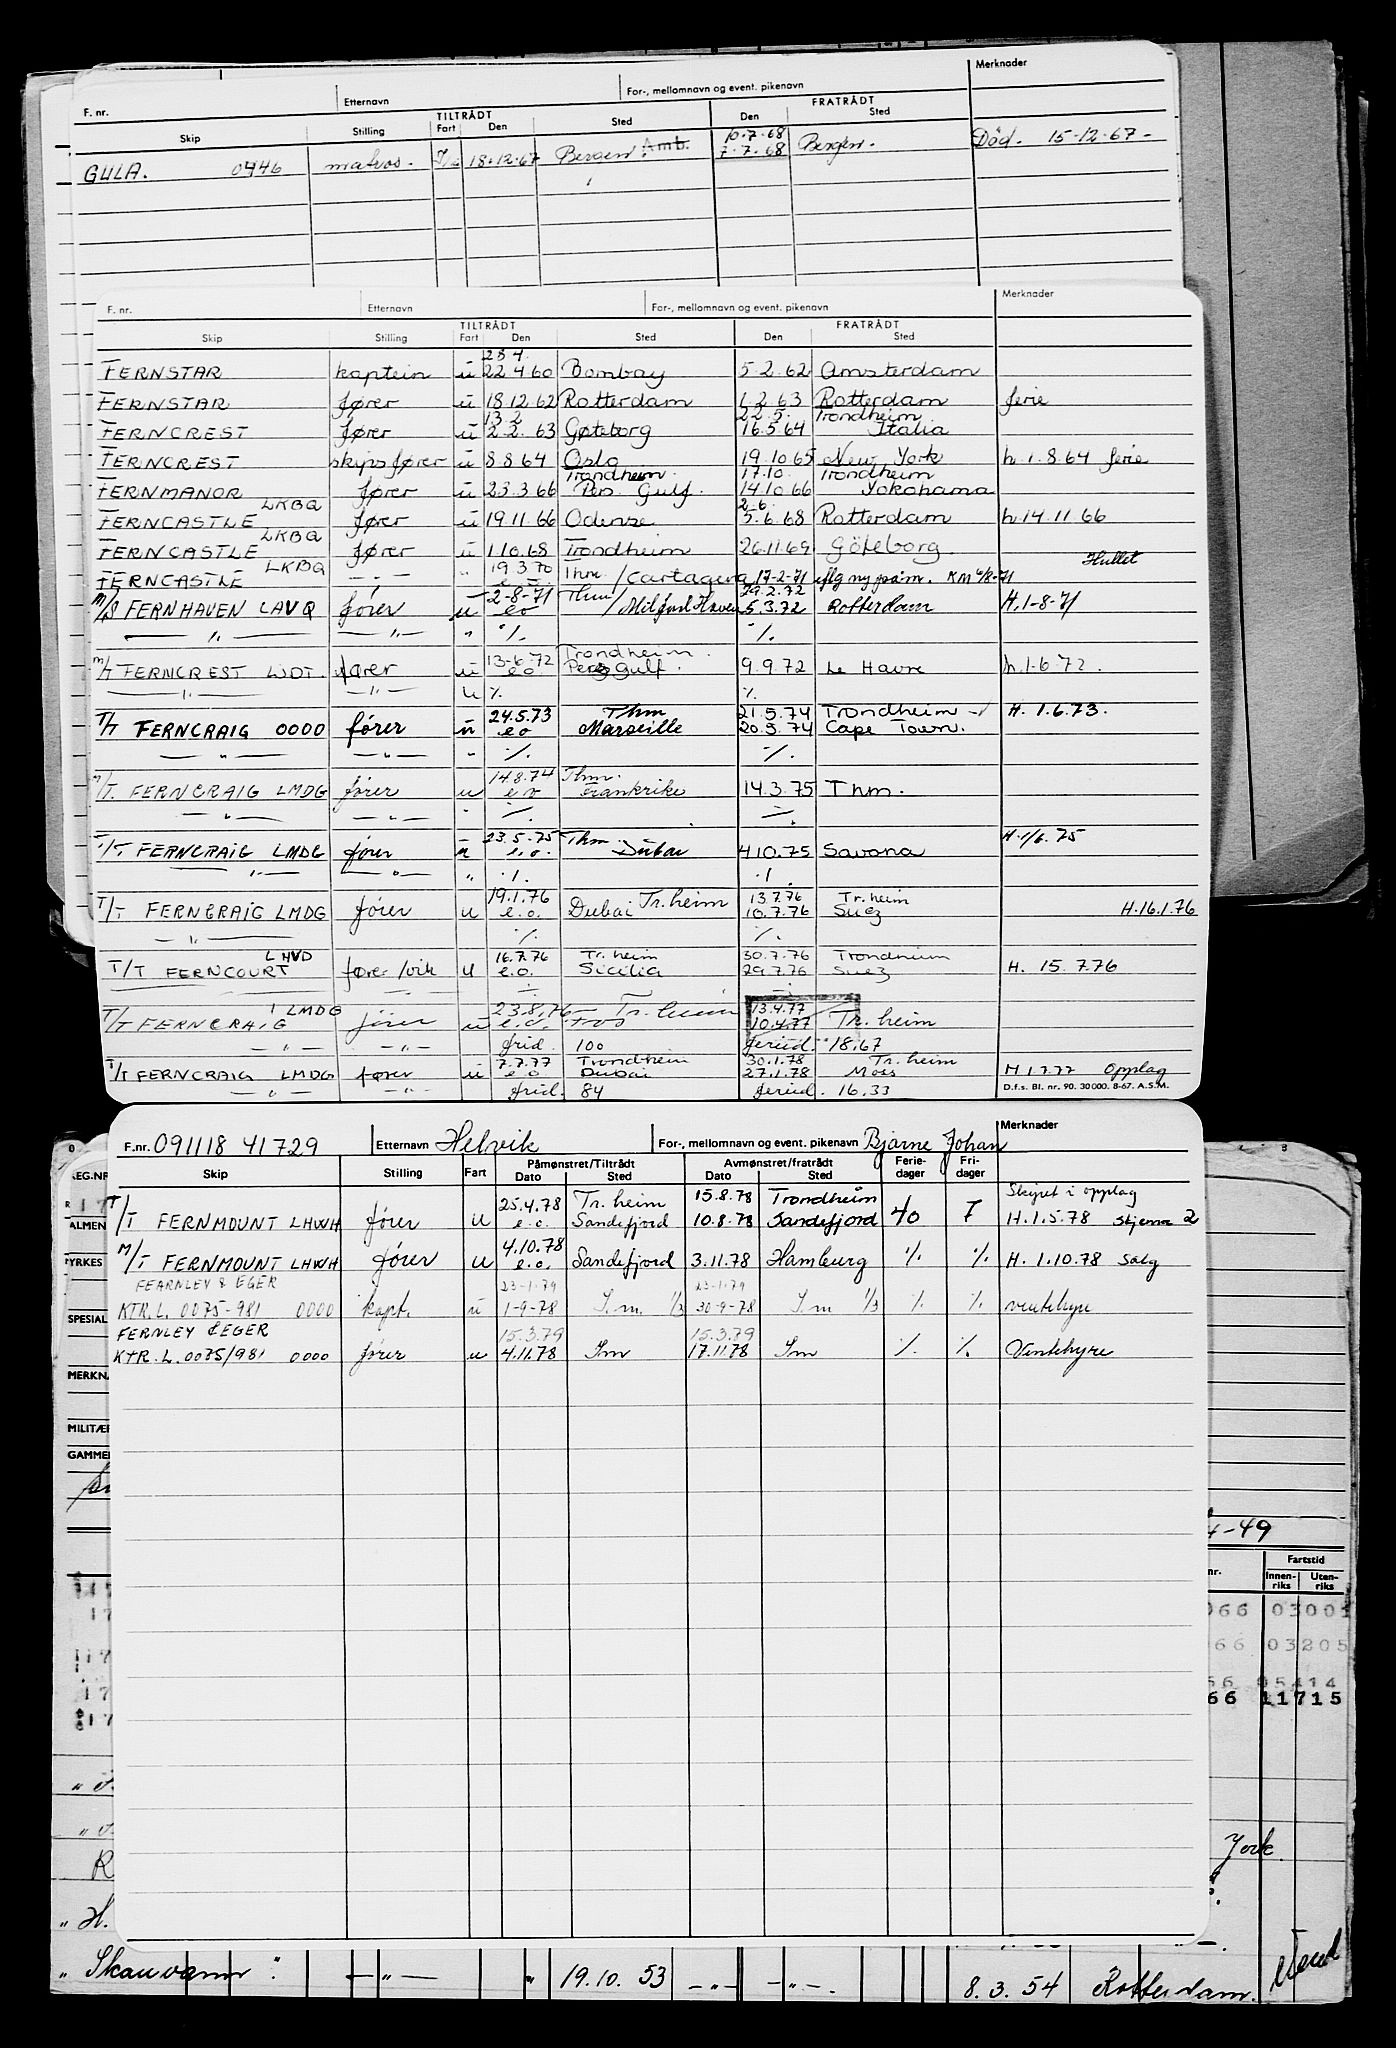 F. nr. Etternavn For-, mellomnavn og event. pikenavn Merknader
TILTRÅDT FRATRÅDT
Skip Stilling Fart Den Sted Den Sted
10.7.68
GULA. 0446 matros. 18.12.67 Bergen. Amb. 7.7.68 Bergen. Død. 15-12-67-
F. nr. Etternavn For-, mellomnavn og event. pikenavn Merknader
TILTRÅDT FRATRÅDT
Skip Stilling Fart Den Sted Den Sted
28 4.
FERNSTAR kaptein u 22 4 60 Bombay 5.2.62 Amsterdam
FERNSTAR fører u 18.12.62 Rotterdam 1.2.63 Rotterdam ferie
13 2 22.5. Trondheim
FERNCREST fører u 2.2.63 Gøteborg 16.5.64 Italia
FERNCREST skipsfører u 8.8.64 Oslo 19.10.65 New York h.1.8.64 ferie
Trondheim. 17.10. Trondheim
FERNMANOR fører u 23.3.66 Pers. Gulf. 14.10.66 Yokohama
LKBQ 2-6.
FERNCASTLE fører u 19.11.66 Odense 5.6.68 Rotterdam h.14.11.66
LKBQ
FERNCASTLE fører u 1.10.68 Trondheim 26.11.69 Göteborg.
LKBQ 19.3.70 Hullet
FERNCASTLE -"- " e.o. Thm / Cartagena 17-2-71
2-8-71 Thm 29.2.72
M/S FERNHAVEN LAVQ fører u eo / Milford Haven 5.3.72 Rotterdam H.1-8-71
-"- -"- " %. %.
13-6-72 Trondheim.
M/T FERNCREST LJDT. fører u eo Pers Gulf. 9.9.72 Le Havre h.1.6.72.
-"- -"- u %. %
24.5.73 Thm 21.5.74 Trondheim
T/T FERNCRAIG 0000 fører u eo Marseille 20.5.74 Cape Town. H. 1.6.73.
-"- -"- " %. %.
14.8.74 Thm.
M/T. FERNCRAIG LMDG fører u eo Frankrike 14.3.75 Thm.
-"- -"- " %. %.
23.5-75 Thm. H.1/6.75
T/T FERNCRAIG LMDG fører u e.o. Dubai 4.10.75 Savona
-"- -"- " %. %.
19.1.76 Tr.heim 13.7.76 Tr.heim
T/T FERNCRAIG LMDG fører u e.o. Dubai 10.7.76 Suez H.16.1.76
-"- %. %.
LHVD 16.7.76 Tr.heim 30.7.76 Trondheim
T/T FERNCOURT fører/vik u e.o. Sicilia 29.7.76 Suez H. 15.7.76
LMDG 23.8.76 Tr.heim 13.4.77
T/T FERNCRAIG fører u e.o. Fos 10.4.77 Tr.heim
-"- -"- frid. 100 feried. 18.67
7.7.77 Trondheim 30.1.78 Tr.heim
T/T FERNCRAIG LMDG fører u e.o Dubai 27.1.78 Moss H 1.7.77 Opplag
-"- -"- frid. 84 feried. 16.33 D.f.s. Bl. nr. 90. 30000. 8-67. A.S.M.
F.nr. 091118 41729 Etternavn Helvik For-, mellomnavn og event. pikenavn Bjarne Johan Merknader
Skip Stilling Fart Påmønstret/Tiltrådt Avmønstret/fratrådt Ferie-dager Fri-dager
Dato Sted Dato Sted
25.4.78 Tr.heim 15.8.78 Trondheim i opplag
T/T FERNMOUNT LHWH fører u e.o. Sandefjord 10.8.78 Sandefjord 40 7 H.1.5.78 skjema 2
4.10.78
M/T FERNMOUNT LHWH fører u e.o. Sandefjord 3.11.78 Hamburg % % H. 1.10.78 Salg
FEARNLEY & EGER 23-1-79 23-1-79
KTR.L. 0075-981 0000 kapt. u 1-9-78 I.m. 1/3 30-9-78 I.m 1/3 % % ventehyre
FERNLEY & EGER 15.3.79 15.3.79
KTR.L.0075/981 0000 fører u 4.11.78 Im 17.11.78 Im % % Ventehyre
REG.NR
ALMEN
YRKES
SPESIAL
MERKNA
MILITÆR
GAMMEL
4-49
Fartstid
nr. Innen-riks Uten-riks
066 03001
66 03205
66 05414
66 11715
York.
" H.
" Skauvann ". -"- " 19.10.53 -"- -"-. 8.3.54 Rotterdam.